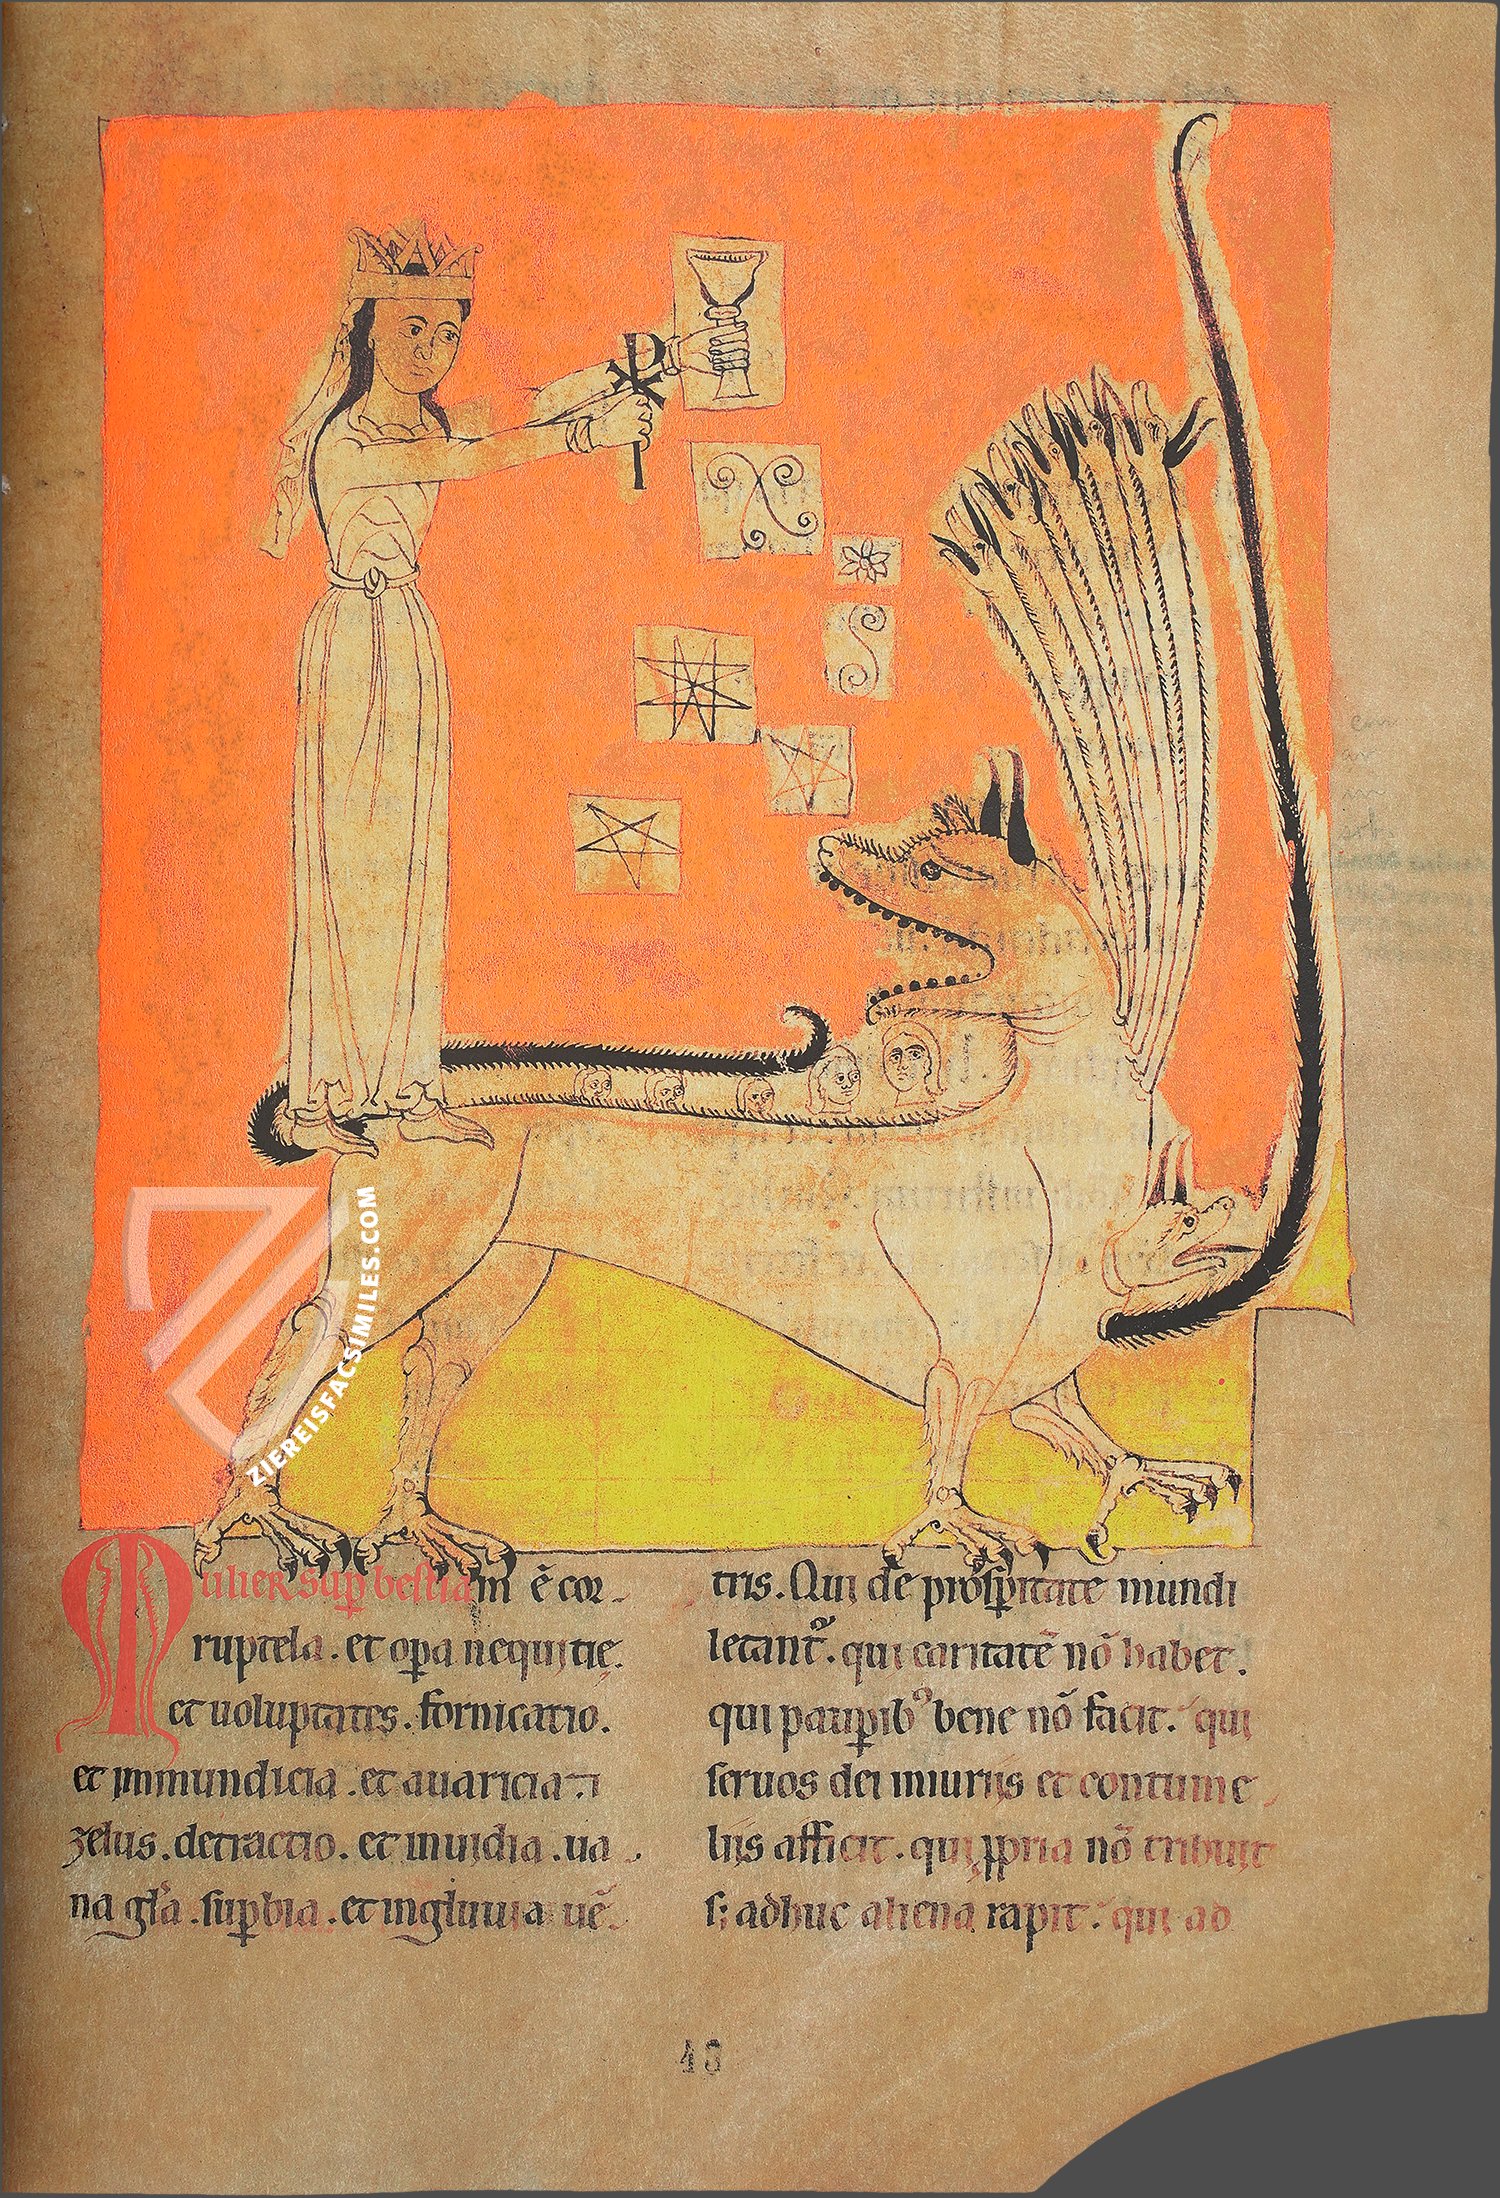 ZIEREISFACSIMILES.COM
Mulier sup bestiam ē cor-
ruptela . et opa nequitie .
et uoluptates . fornicatio .
et inmundicia . et auaricia .
zelus . detractio . et inuidia . ua-
na gła . supbia . et ingluuia uē-
tris . Qui de prosperitate mundi
letant . qui caritatē nō habet .
qui paupib bene nō facit . qui
seruos dei iniuriis et contume-
liis afficit . qui ppria nō tribuit
s; adhuc aliena rapit . qui ad
43